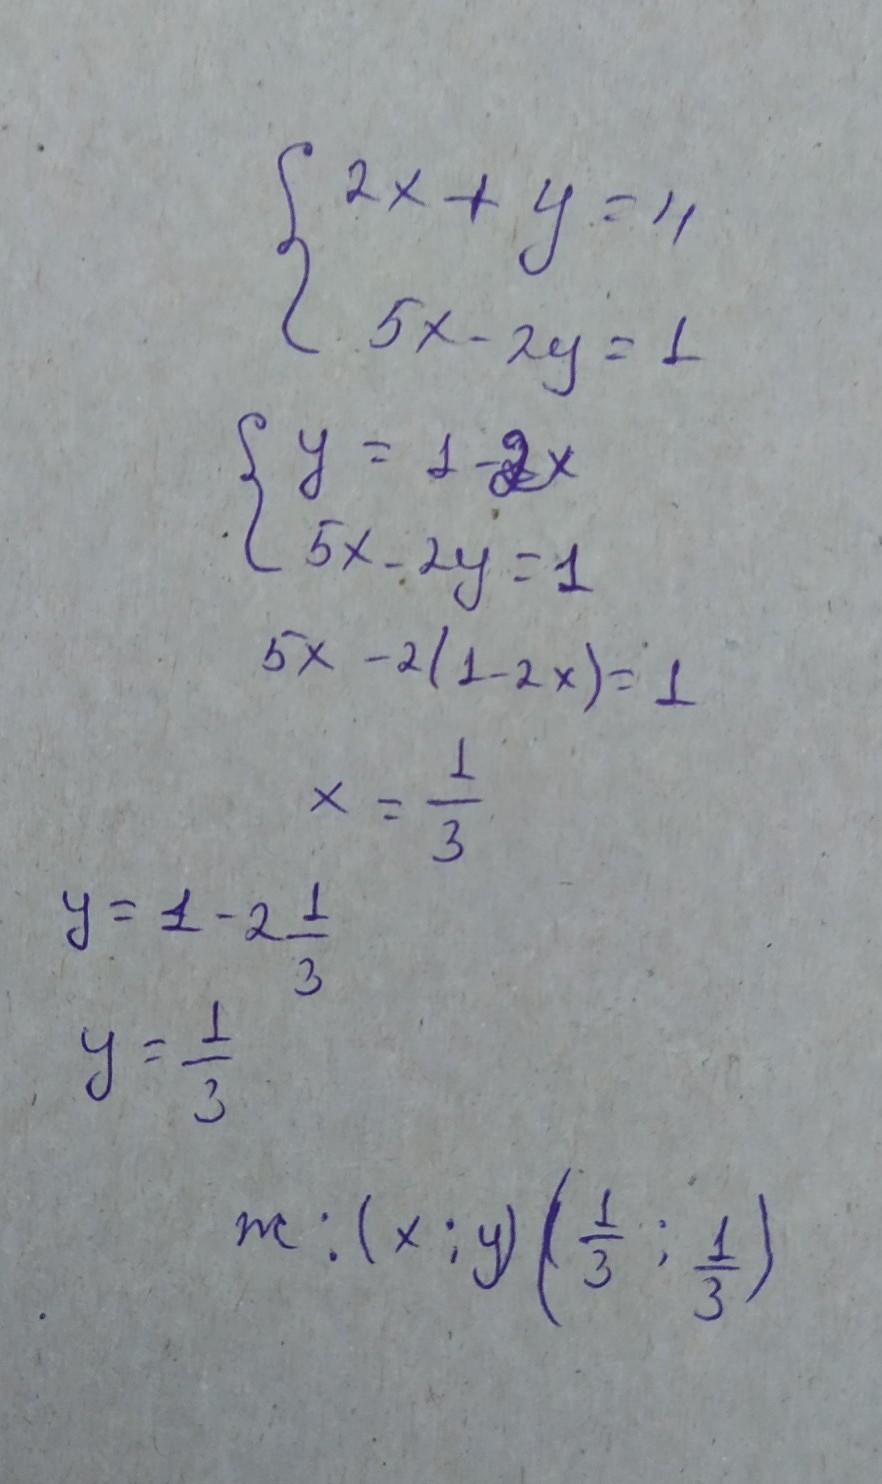 { 2x + y = 4
5x - 2y = 1
{ y = 1 - 2x
5x - 2y = 1
5x - 2(1 - 2x) = 1
x = 1/3
y = 1 - 2 1/3
y = 1/3
: (x ; y) (1/3 ; 1/3)